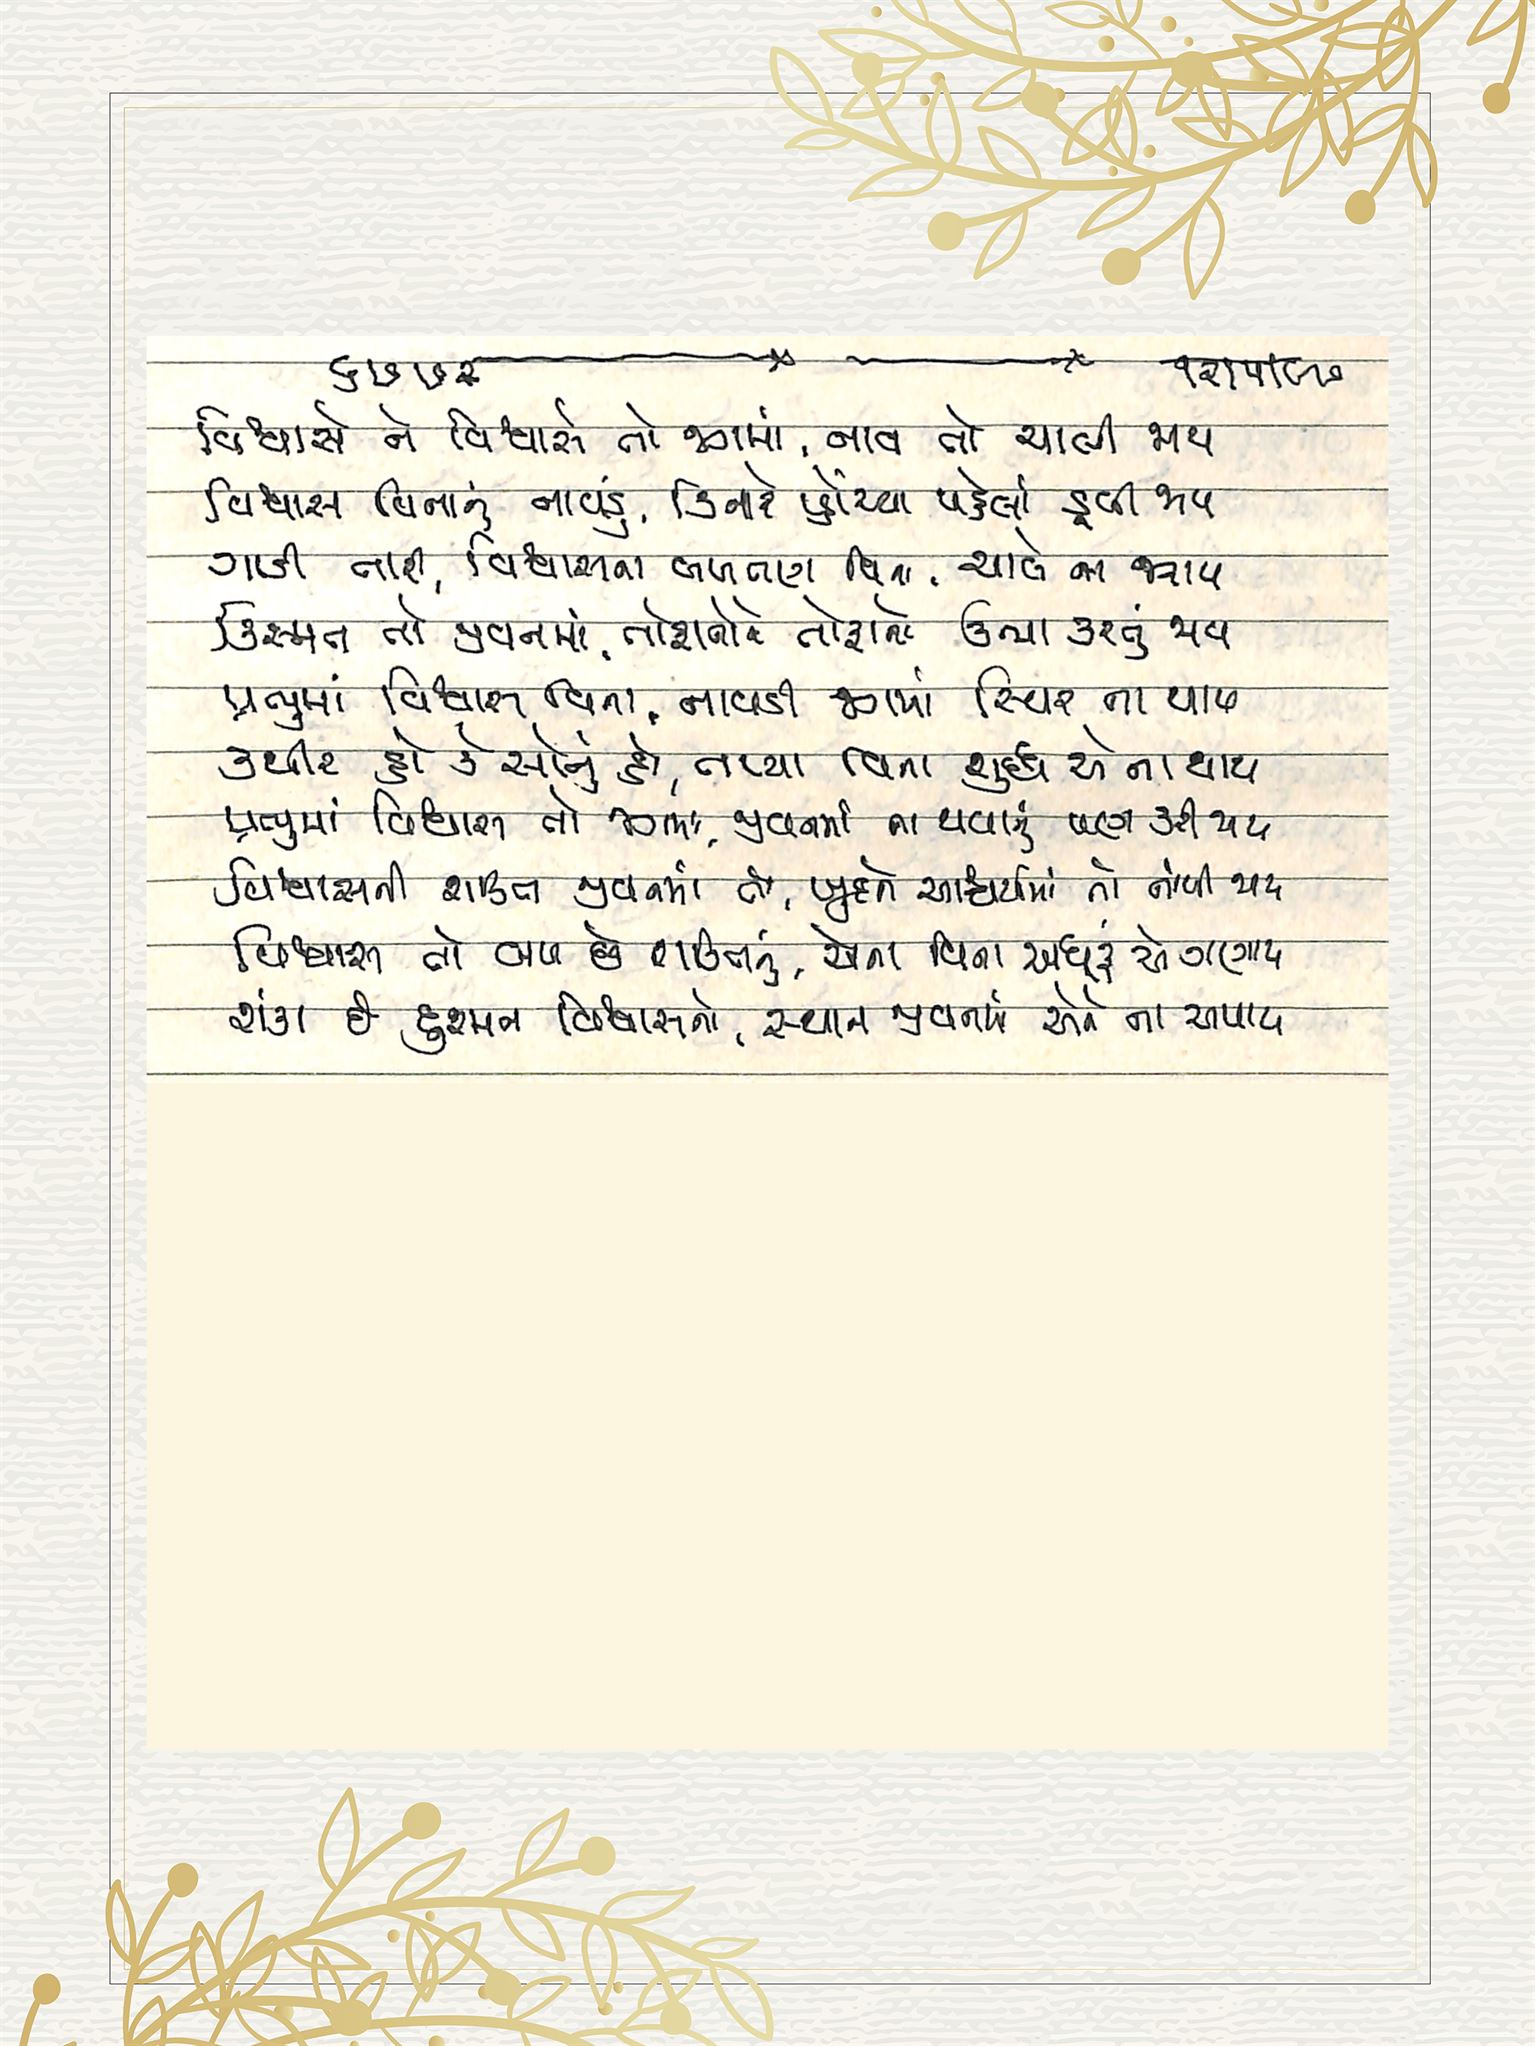 વિશ્વાસે ને વિશ્વાસે તો જગમાં, નાવ તો ચાલી જાય
વિશ્વાસ વિનાનું નાવડું, કિનારે પ્હોંચ્યા પહેલાં ડૂબી જાય
ગાડી તારી, વિશ્વાસના બળતણ વિના, ચાલે ના જરાય
કિસ્મત તો જીવનમાં, તો ઊભા કરતું જાય
પ્રભુમાં વિશ્વાસ વિના, નાવડી જગમાં સ્થિર ના થાય
કથીર હો કે સોનું હો, તપ્યા વિના શુદ્ધ એ ના થાય
પ્રભુમાં વિશ્વાસ તો જગમાં, જીવનમાં ના થવાનું પણ કરી જાય
વિશ્વાસની શક્તિ જીવનમાં તો, ખુદને આશ્ચર્યમાં તો નાંખી જાય
વિશ્વાસ તો બળ છે શક્તિનું, એના વિના અધૂરું એ ગણાય
શંકા છે દુશ્મન વિશ્વાસનો, સ્થાન જીવનમાં એને ના અપાય